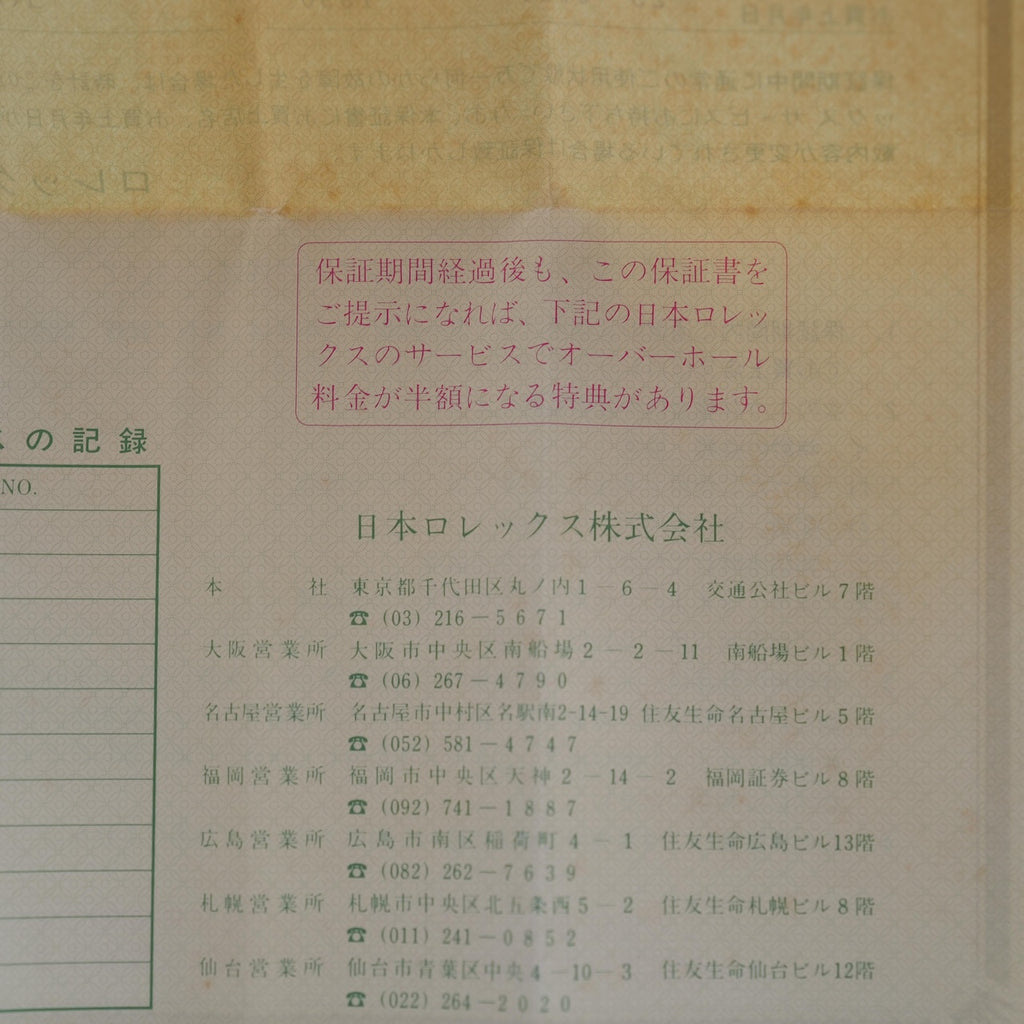 保証期間経過後も、この保証書を
ご提示になれば、下記の日本ロレッ
クスのサービスでオーバーホール
料金が半額になる特典があります。
の記録
NO.
日本ロレックス株式会社
本社 東京都千代田区丸ノ内1-6-4 交通公社ビル7階
☎ (03) 216-5671
大阪営業所 大阪市中央区南船場2-2-11 南船場ビル1階
☎ (06) 267-4790
名古屋営業所 名古屋市中村区名駅南2-14-19 住友生命名古屋ビル5階
☎ (052) 581-4747
福岡営業所 福岡市中央区天神2-14-2 福岡証券ビル8階
☎ (092) 741-1887
広島営業所 広島市南区稲荷町4-1 住友生命広島ビル13階
☎ (082) 262-7639
札幌営業所 札幌市中央区北五条西5-2 住友生命札幌ビル8階
☎ (011) 241-0852
仙台営業所 仙台市青葉区中央4-10-3 住友生命仙台ビル12階
☎ (022) 264-2020